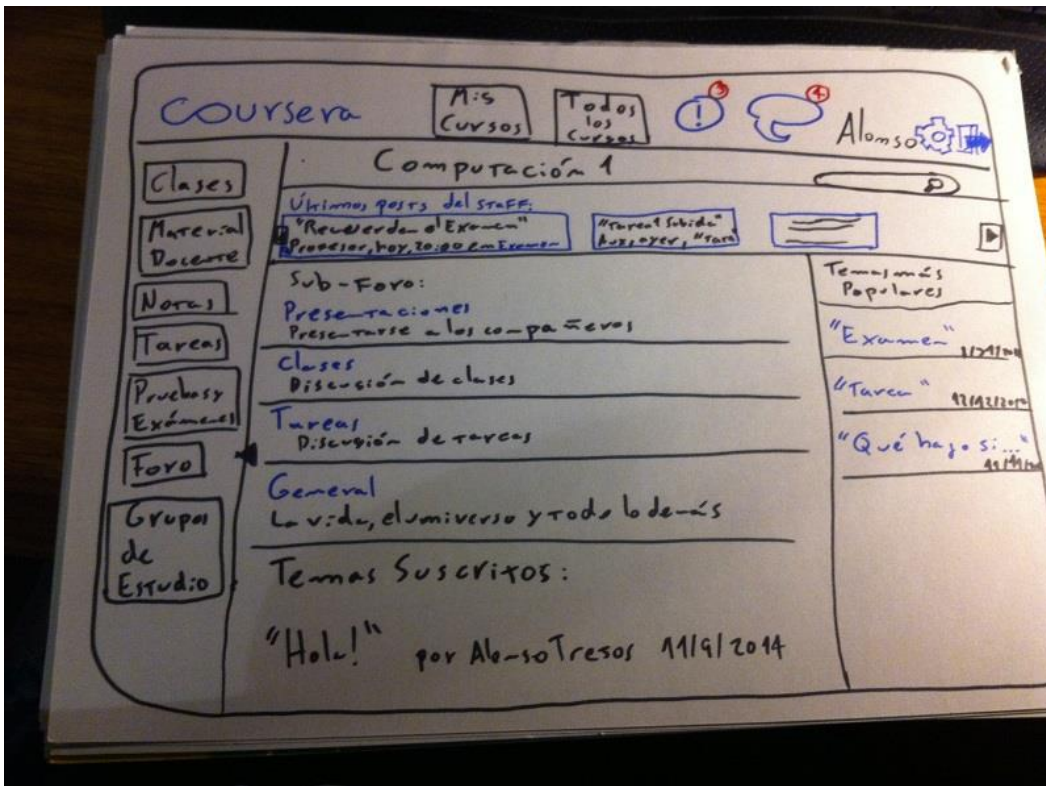 Coursera
Mis
Cursos
Todos
los
Cursos
!
3
4
Alonso
Clases
Material
Docente
Notas
Tareas
Pruebas y
Exámenes
Foro
Grupos
de
Estudio
Computación 1
Últimos posts del staff:
"Recuerden el Examen"
Profesor, hoy, 20:00 en Examen
"Tarea 1 Subida"
Aux, ayer, "Tare
Sub-Foro:
Presentaciones
Presentarse a los compañeros
Clases
Discusión de clases
Tareas
Discusión de tareas
General
La vida, el universo y todo lo demás
Temas Suscritos:
"Hola!" por Alonso Tresos 11/9/2014
Temas más
Populares
"Examen"
"Tarea"
12/12/2014
"Qué hago si..."